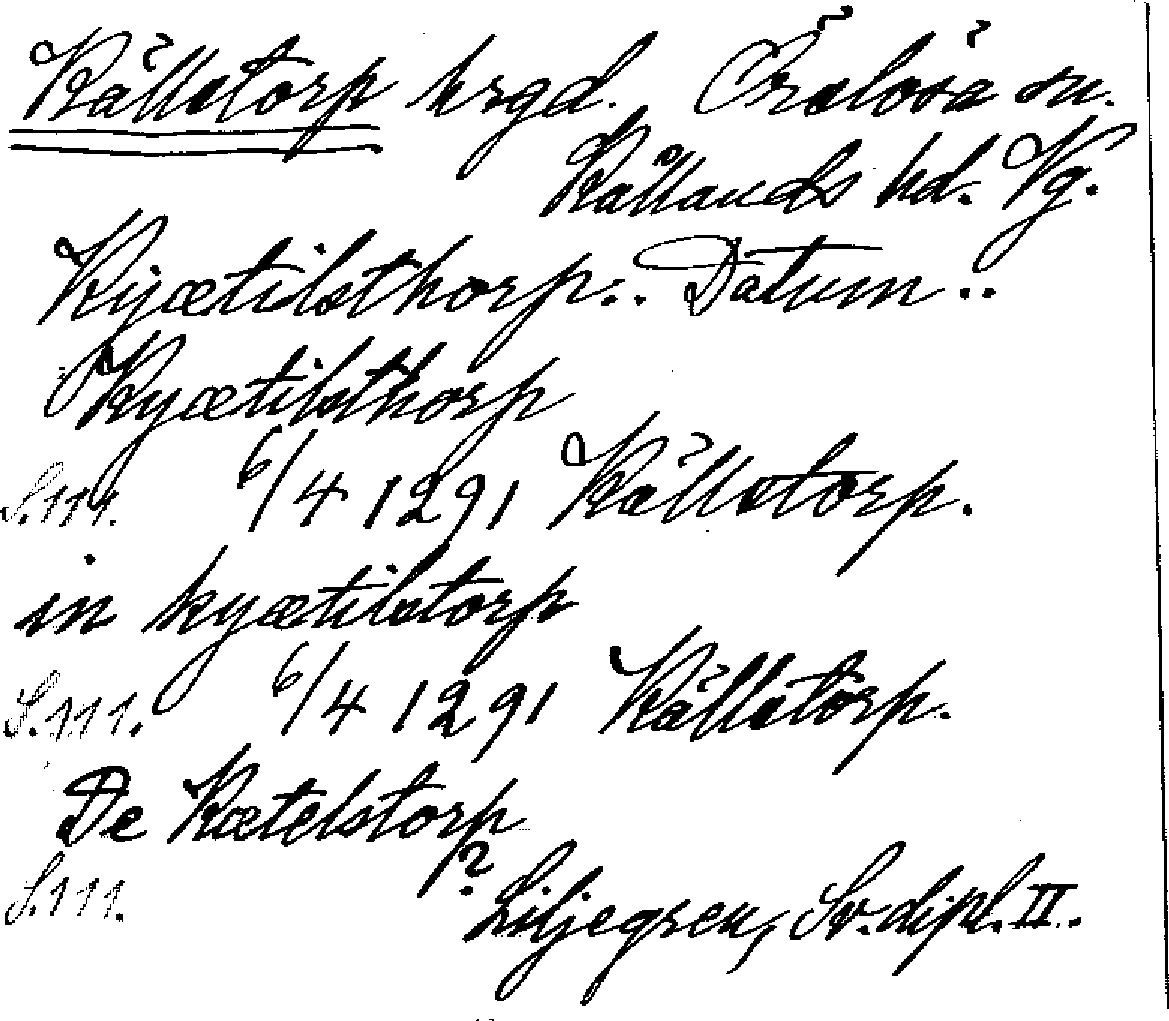 Källstorp hrgd. Örslösa sn.
Kållands hd. Vg.
Kyætilsthorp:. Datum ..
Kyætilsthorp
S.111. 6/4 1291 Källstorp.
in kyætilstorp
S.111. 6/4 1291 Källstorp.
De Kætelstorp
?
S.111. Liljegren, Sv. dipl. II.